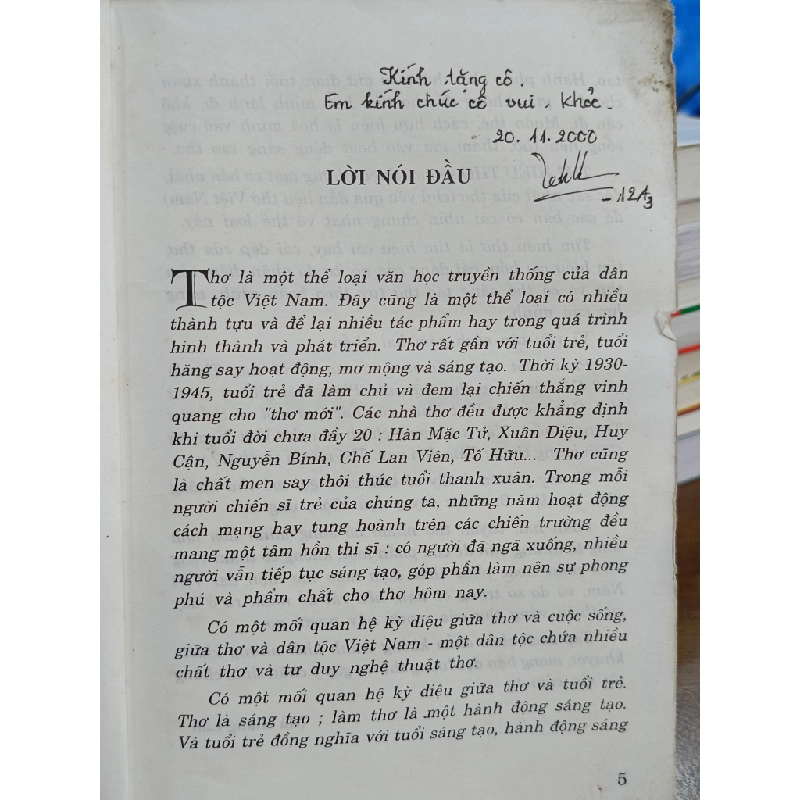 Kính tặng cô.
Em kính chúc cô vui, khỏe.
20.11.2000
- 12A3
LỜI NÓI ĐẦU
Thơ là một thể loại văn học truyền thống của dân
tộc Việt Nam. Đây cũng là một thể loại có nhiều
thành tựu và để lại nhiều tác phẩm hay trong quá trình
hình thành và phát triển. Thơ rất gần với tuổi trẻ, tuổi
hăng say hoạt động, mơ mộng và sáng tạo. Thời kỳ 1930-
1945, tuổi trẻ đã làm chủ và đem lại chiến thắng vinh
quang cho "thơ mới". Các nhà thơ đều được khẳng định
khi tuổi đời chưa đầy 20 : Hàn Mặc Tử, Xuân Diệu, Huy
Cận, Nguyễn Bính, Chế Lan Viên, Tố Hữu... Thơ cũng
là chất men say thôi thúc tuổi thanh xuân. Trong mỗi
người chiến sĩ trẻ của chúng ta, những năm hoạt động
cách mạng hay tung hoành trên các chiến trường đều
mang một tâm hồn thi sĩ : có người đã ngã xuống, nhiều
người vẫn tiếp tục sáng tạo, góp phần làm nên sự phong
phú và phẩm chất cho thơ hôm nay.
Có một mối quan hệ kỳ diệu giữa thơ và cuộc sống,
giữa thơ và dân tộc Việt Nam - một dân tộc chứa nhiều
chất thơ và tư duy nghệ thuật thơ.
Có một mối quan hệ kỳ diệu giữa thơ và tuổi trẻ.
Thơ là sáng tạo ; làm thơ là một hành động sáng tạo.
Và tuổi trẻ đồng nghĩa với tuổi sáng tạo, hành động sáng
5